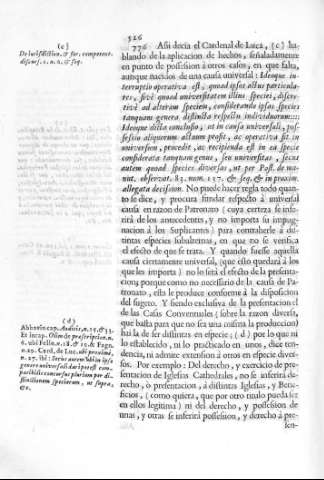 526
776 Assi decia el Cardenal de Luca, (c) ha-
blando de la aplicacion de hechos, señaladamente
en punto de possession à otros casos, en que falta,
aunque nacidos de una causa universal: Ideoque in-
terruptio operativa est, quoad ipsos actus particula-
res, sivè quoad universitatem illius speciei, diver-
sivè ad alteram speciem, considerando ipsas species
tanquam genera distincta respectu individuorum::::
Ideoque dicta conclusio, ut in causa universali, pos-
sessio aliquorum actuum prosit, ac operativa sit in
universum, procedit, ac recipienda est in ea specie
considerata tanquam genus, seu universitas, secus
autem quoad species diversas, ut per Post. de ma-
nut. observat. 83. num. 117. & seq. & in proxim.
allegata decisione. No puede hacer regla todo quan-
to se dice, y procura fundar respecto à universal
causa en razon de Patronato (cuya certeza se infe-
rirà de los antecedentes, y no importa la impug-
nacion à los Suplicantes) para contraherle à dis-
tintas especies subalternas, en que no se verifica
el efecto de que se trata. Y quando fuesse aquella
causa ciertamente universal, (que esto quedarà à los
que les importa) no lo serà el efecto de la presenta-
cion; porque como no necessario de la causa de Pa-
tronato, esto le produce conforme à la disposicion
del sugeto. Y siendo exclusiva de la presentacion el
de las Casas Conventuales (sobre la razon diversa,
que basta para que no sea una misma la produccion)
hai la de ser distintas en especie; (d) por lo que ni
lo establecido, ni lo practicado en unos, dice ten-
dencia, ni admite extension à otros en especie diver-
sos. Por exemplo: Del derecho, y exercicio de pre-
sentacion de Iglesias Cathedrales, no se inferirà de-
recho, ò presentacion, à distintas Iglesias, y Bene-
ficios, (como quiera, que por otro titulo pueda ser
en ellos legitima) ni del derecho, y possession de
unas, y otras se inferirà possession, y derecho à pre-
sen-
(c)
De Iurisdiction. & for. competent.
discurs. 1. n. 2. & seq.
(d)
Et in cap. Olim de præscription. n.
6. ubi Felin. n. 18. & 19. & Fagn.
n. 29. Card. de Luc. ubi proximè,
n. 27. ibi:
genere universali dari potest com-
distinctarum specierum, ut supra,
&c.